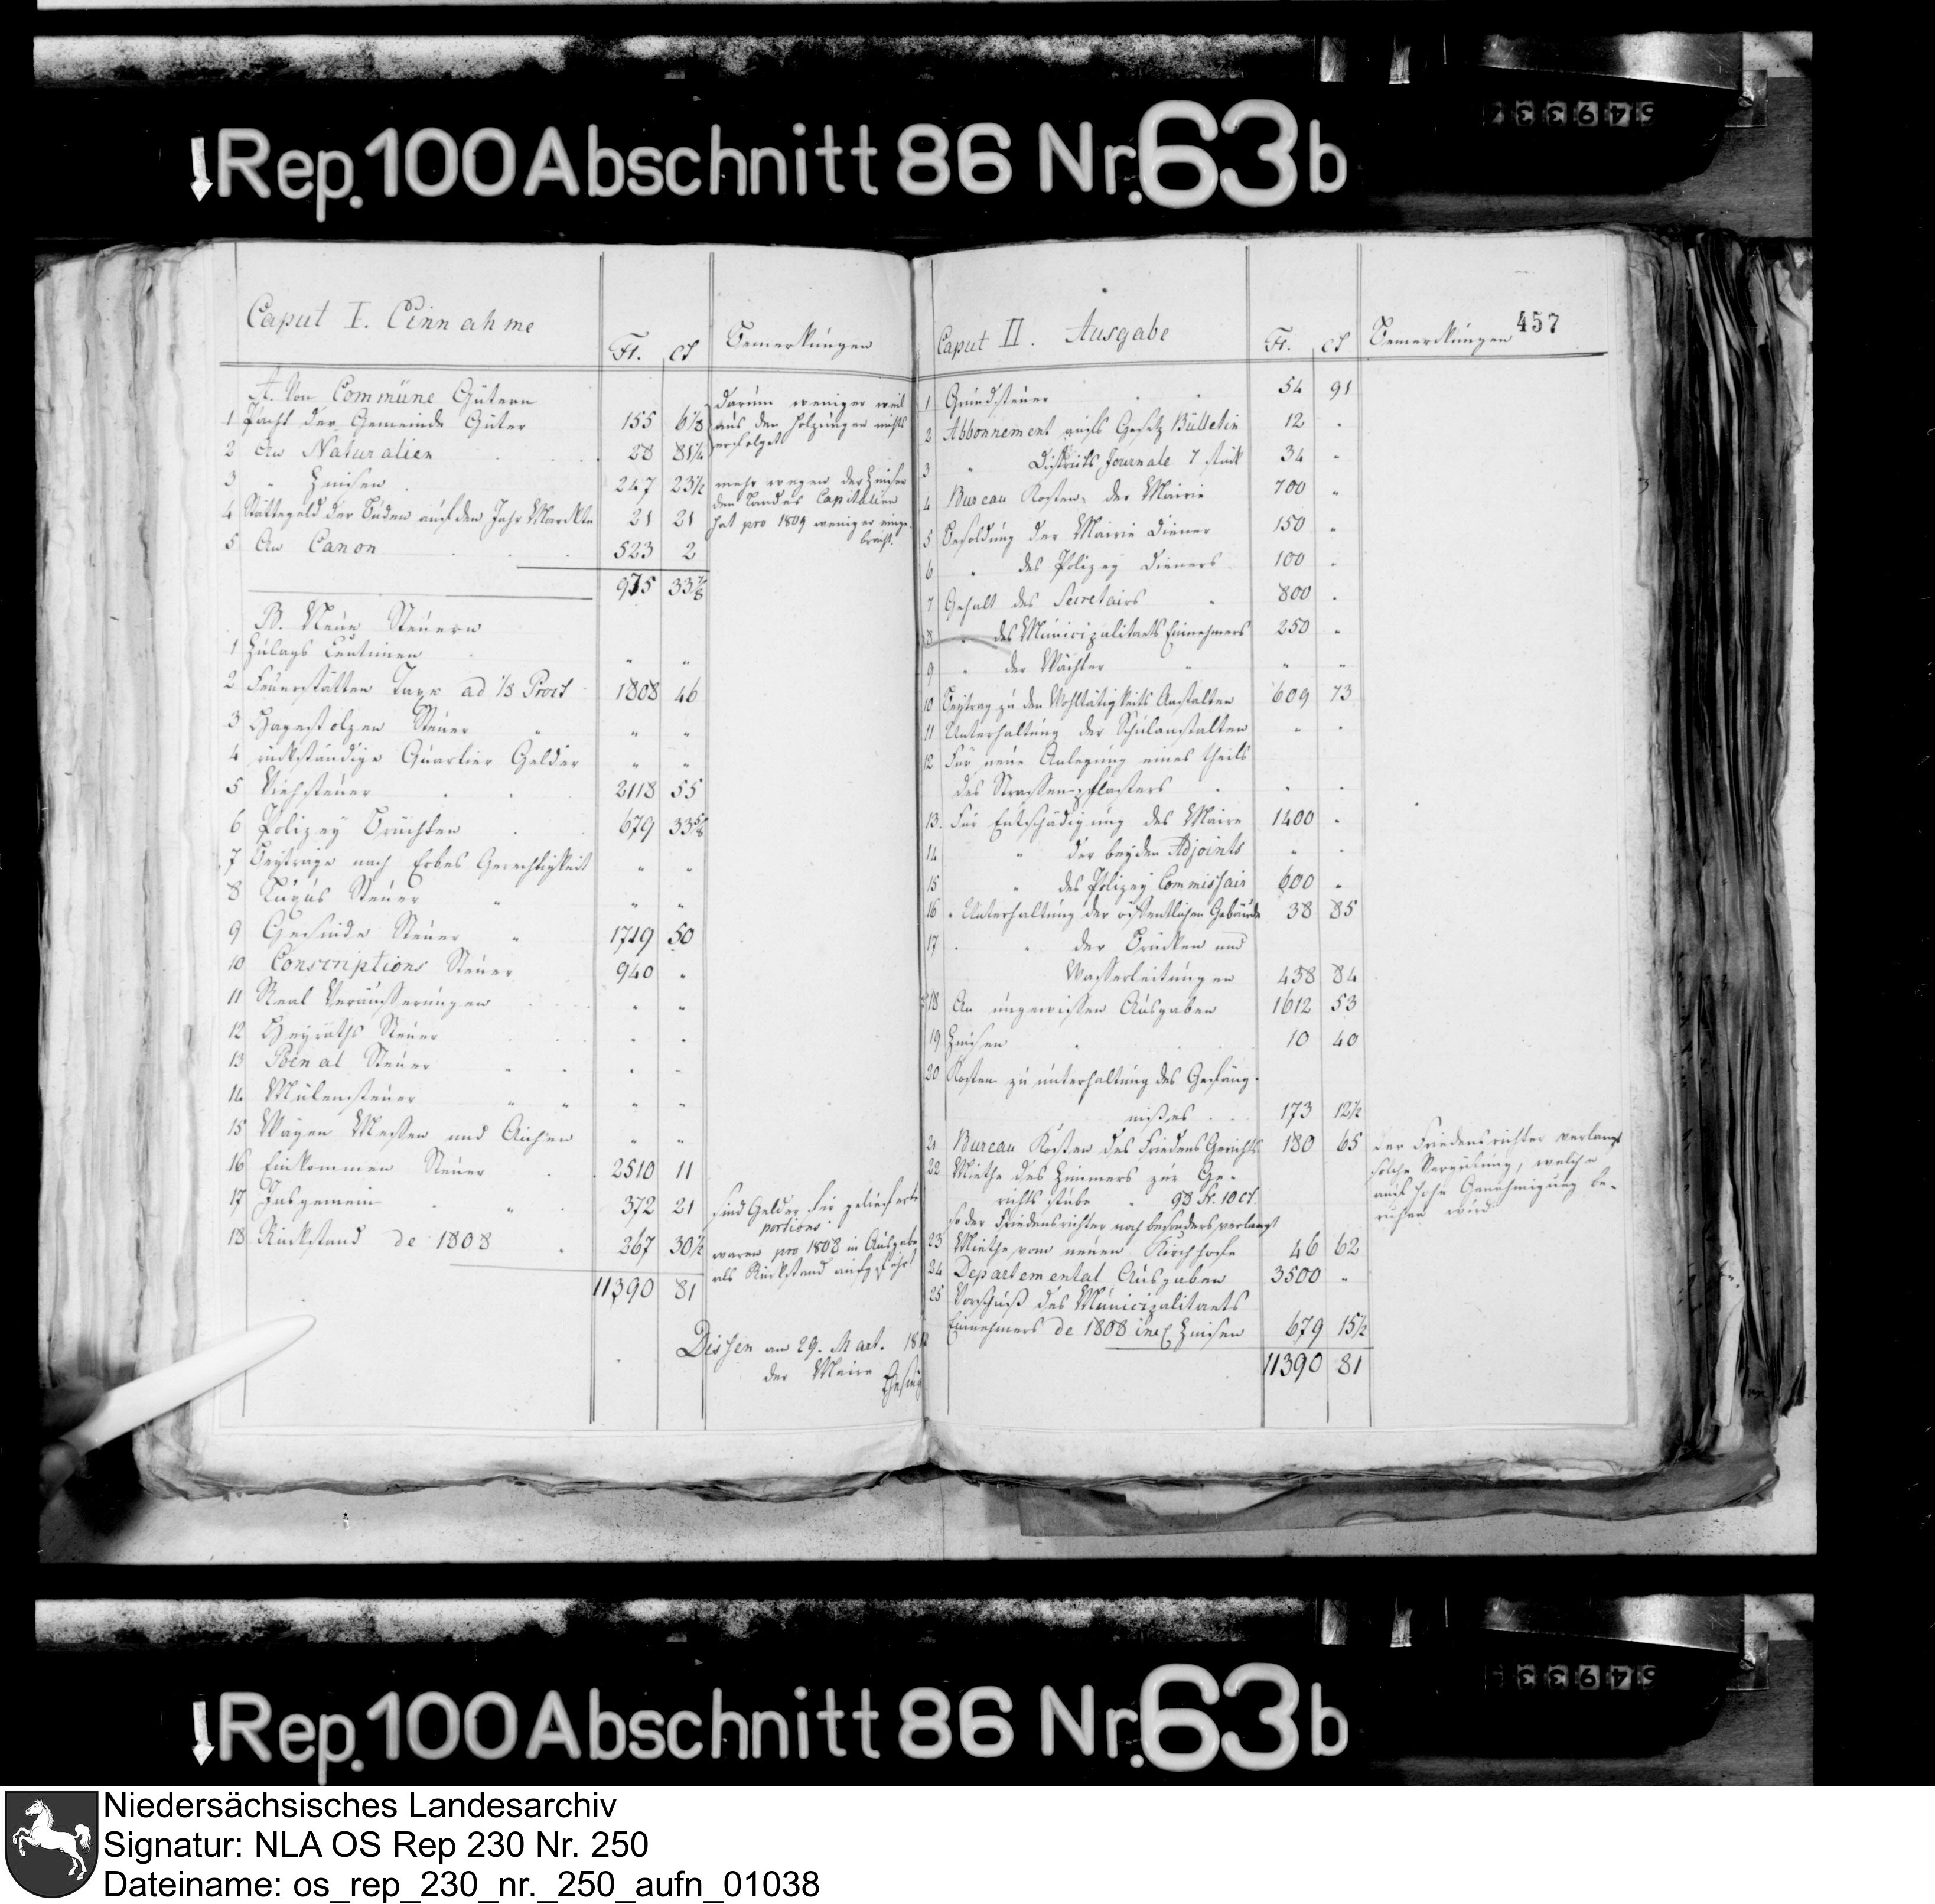 Rep. 100 Abschnitt 86 Nr. 63b
Caput I. Einnahme
Fr. ct Bemerkungen
A. Von Commüne Gütern
1 Pacht der Gemeinde Güter 155 6 1/8 darum weniger weil
aus den Holzungen nichts
erfolget
2 An Naturalien 28 81 1/4
3 " Zinsen 247 23 1/2 mehr wegen der Zinsen
den Landes Capitalien
4 Stättegeld der Buden auf den Jahr Marckte 21 21 hat pro 1809 weniger einge-
bracht.
5 An Canon 523 2
975 33 7/8
B. Neue Steuern
1 Zulags Centimen " "
2 Feuerstätten Taxe ad 1/8 Proct 1808 46
3 Hagestolzen Steuer " "
4 rückständige Quartier Gelder " "
5 Viehsteuer 2118 55
6 Polizey Brüchten 679 33 5/8
7 Beyträge nach Erbes Gerechtigkeit " "
8 Luxus Steuer " "
9 Gesinde Steuer 1719 50
10 Conscriptions Steuer 940 "
11 Real Veräusserungen " "
12 Heyraths Steuer " "
13 Poenal Steuer " "
14 Mülensteuer " "
15 Wagen Messen und Aichen " "
16 Einkommen Steuer 2510 11
17 Insgemein 372 21 sind Gelder für gelieferte
portions
18 Rückstand de 1808 267 30 1/2 waren pro 1808 in Ausgabe
als Rückstand aufgeführt
11390 81
Dissen am 29. Mart. 18
der Maire
457
Caput II. Ausgabe Fr. ct Bemerckungen
1 Grundsteuer 54 91
2 Abbonnement aufs Gesetz Bülletin 12 "
3 " Districts Journale 7 stück 34 "
4 Bureau Kosten der Mairie 700 "
5 Besoldung der Mairie Diener 150 "
6 " des Polizey Dieners 100 "
7 Gehalt des Secretairs 800 "
8 " des Municipalitaets Einnehmers 250 "
9 " der Wächter " "
10 Beytrag zu den Wohltätigkeits Anstalten 609 73
11 Unterhaltung der Schulanstalten " "
12 Für neue Anlegung eines theils
des Strassenpflasters " "
13. Für Entschädigung des Maire 1400 "
14 " der beyden Adjoints " "
15 " des Polizey Commissair 600 "
16 " Unterhaltung der öffentlichen Gebäude 38 85
17 " " der Brücken und
Wasserleitungen 438 84
18 An ungewissen Ausgaben 1612 53
19 Zinsen 10 40
20 Kosten zu unterhaltung des Gefäng-
nißes 173 12 1/2
21 Bureau Kosten des Friedens Gerichts 180 65 der Friedensrichter verlangt
solche Vergütung, welche
auf hohe Genehmigung be-
ruhen wird
22 Miethe des Zimmers zur Ge-
richts stube " 98 Fr. 10 ct.
so der Friedensrichter noch besonders verlangt
23 Miethe vom neuen Kirchhofe 46 62
24 Departemental Ausgaben 3500 "
25 Vorschuß des Municipalitaets
Einnehmers de 1808 incl Zinsen 679 15 1/2
11390 81
Rep. 100 Abschnitt 86 Nr. 63b
Niedersächsisches Landesarchiv
Signatur: NLA OS Rep 230 Nr. 250
Dateiname: os_rep_230_nr._250_aufn_01038